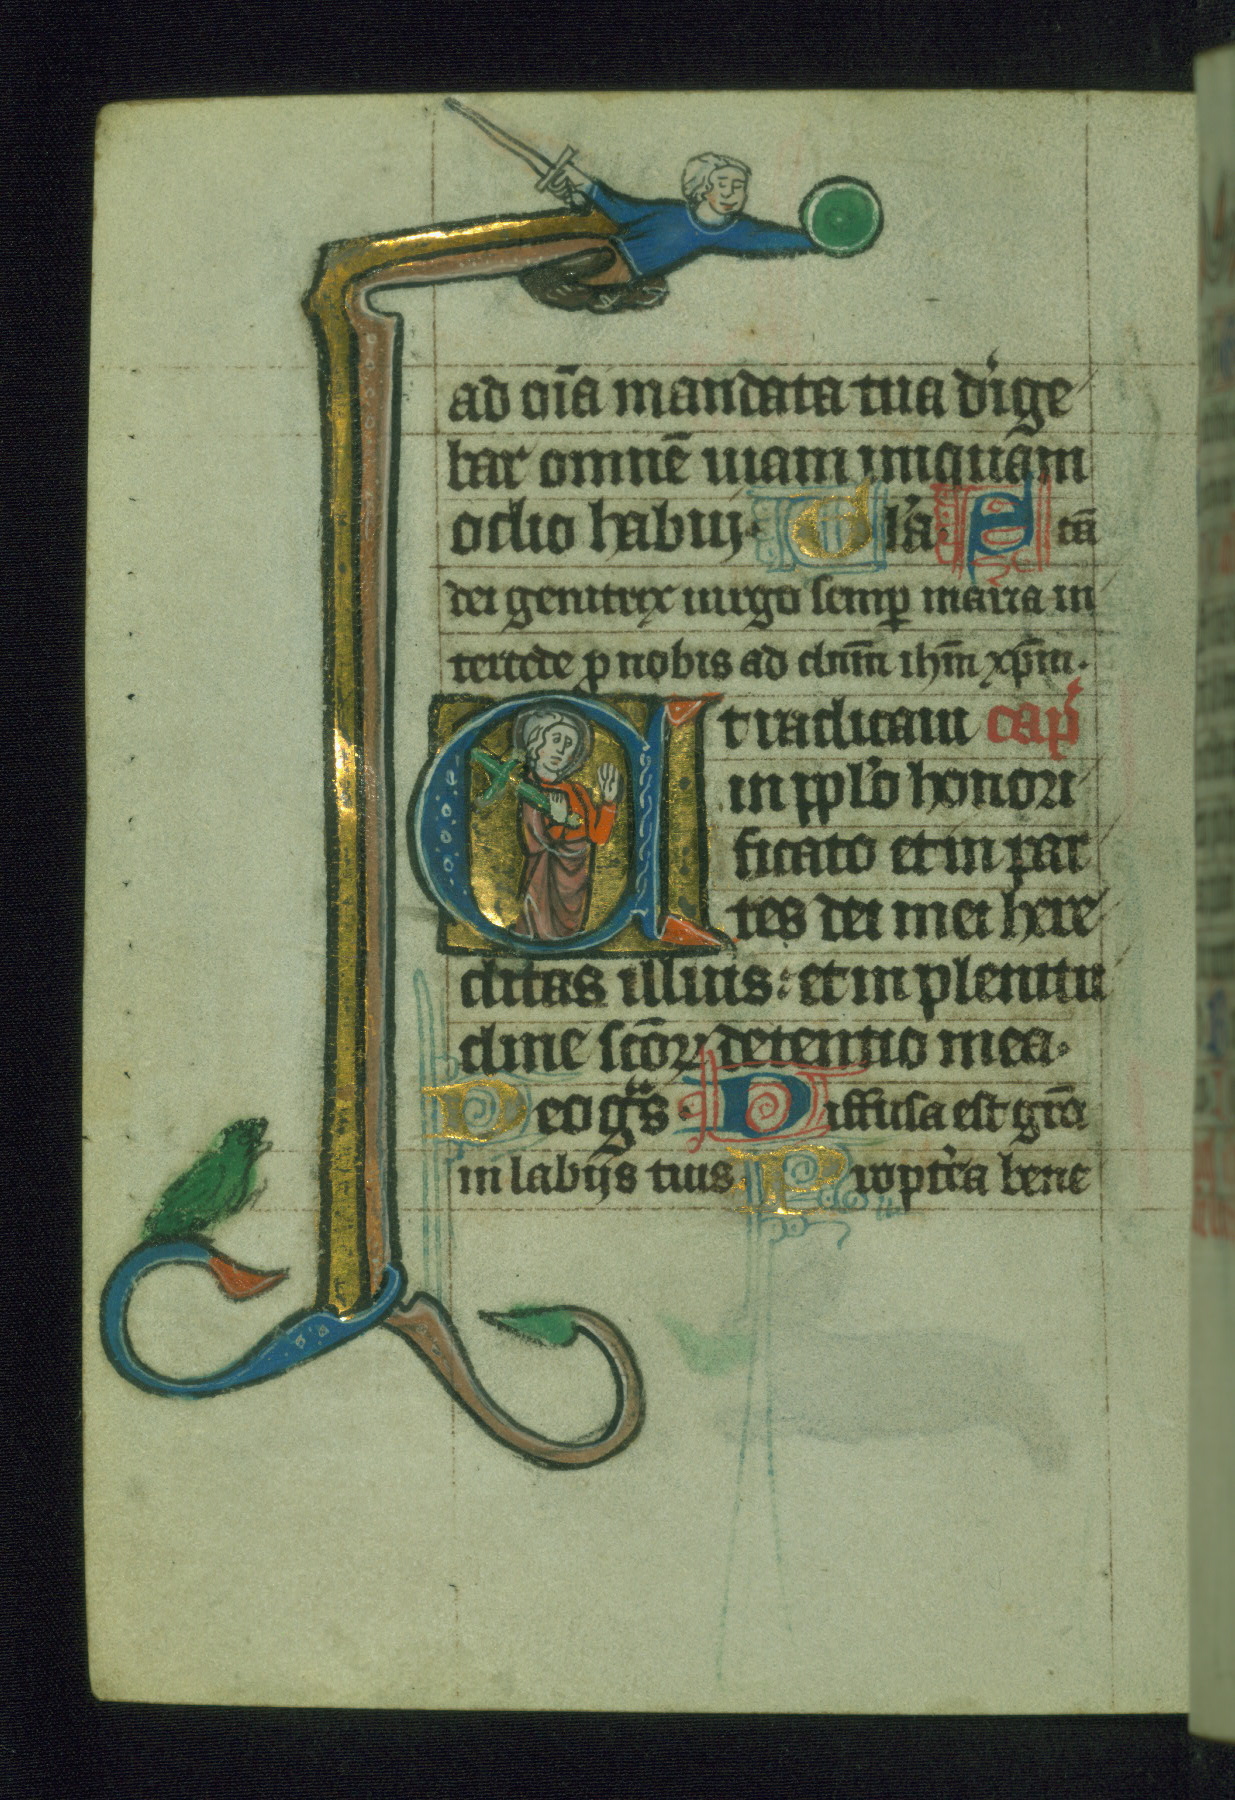 ad oīa mandata tua dirige
bar omnē uiam iniquam
odio habuj. Glā. Scā
dei genitrix uirgo semp maria in
tercede p nobis ad dnm ihm xpm.
Et radicaui cap
in pplo honori
ficato et in par
tes dei mei here
ditas illius: et in plenitu
dine scōrꝫ detentio mea.
Deo gs. Diffusa est grā
in labijs tuis. Propterea bene